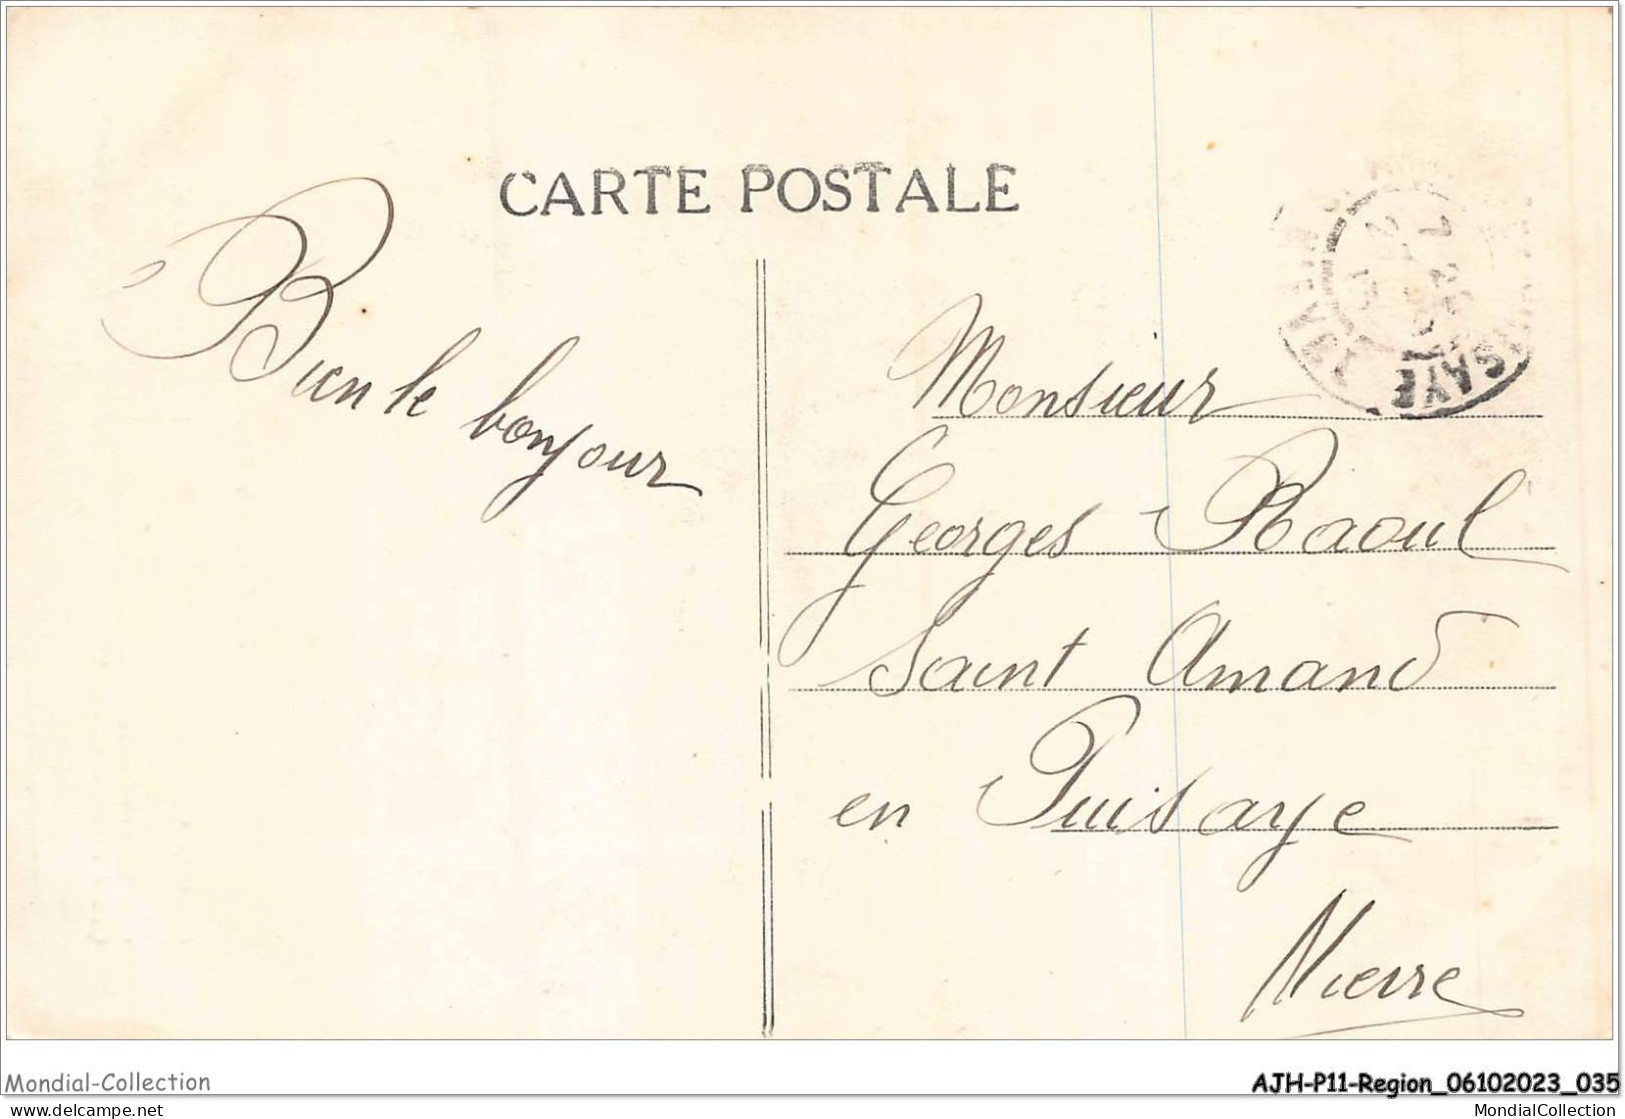 CARTE POSTALE
Bien le bonjour
Monsieur
Georges Raoul
Saint Amand
en Puisaye
Nierre
SAYE
Mondial-Collection
AJH-P11-Region_06102023_035
www.delcampe.net
MondialCollection